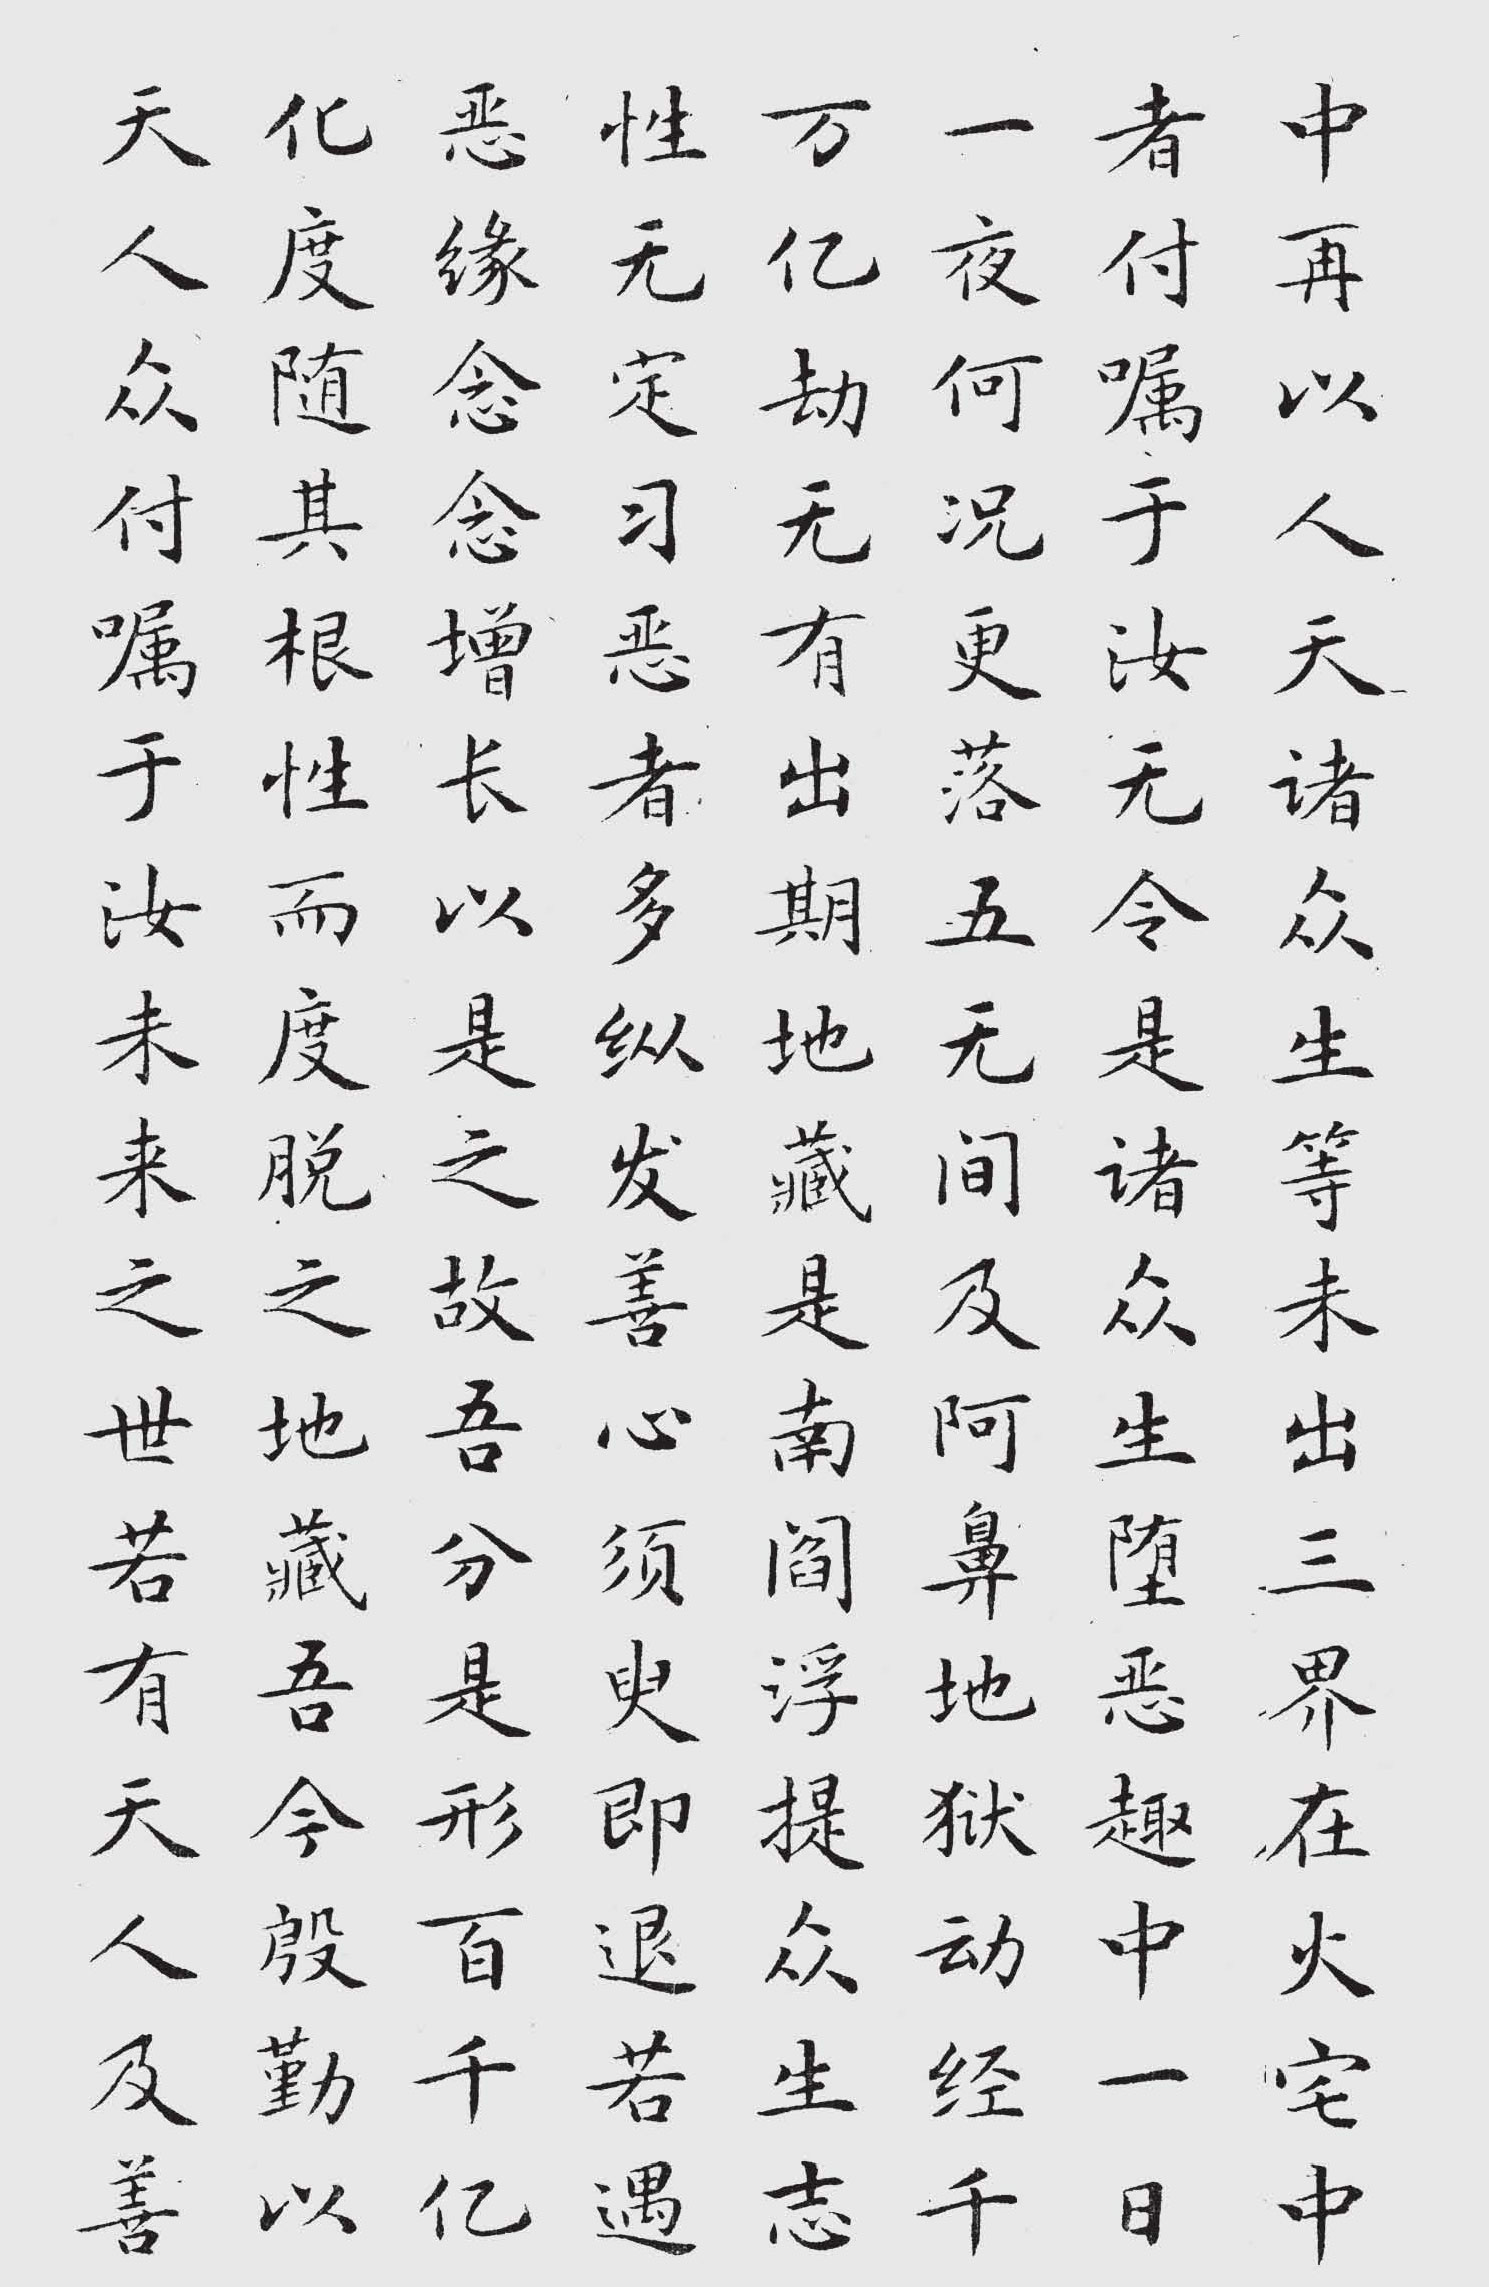 中再以人天诸众生等未出三界在火宅中
者付嘱于汝无令是诸众生堕恶趣中一日
一夜何况更落五无间及阿鼻地狱动经千
万亿劫无有出期地藏是南阎浮提众生志
性无定习恶者多纵发善心须臾即退若遇
恶缘念念增长以是之故吾分是形百千亿
化度随其根性而度脱之地藏吾今殷勤以
天人众付嘱于汝未来之世若有天人及善